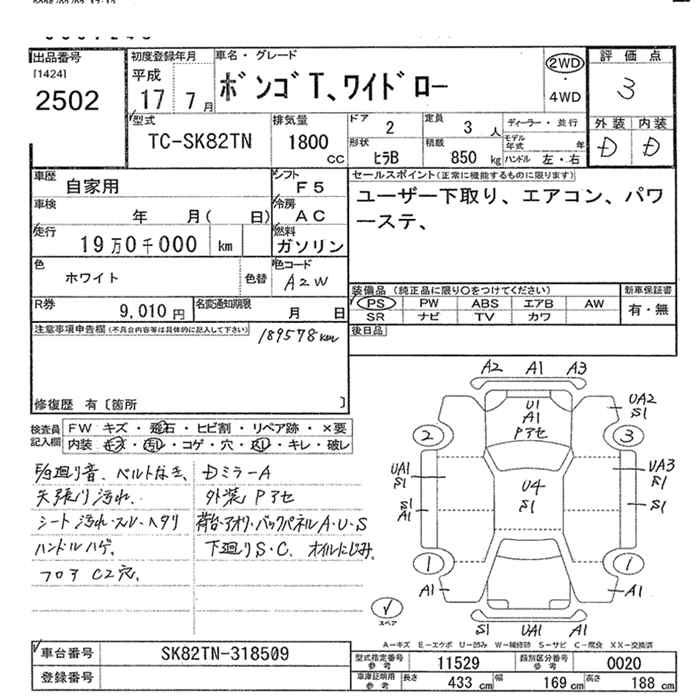 出品番号
[1424]
2502
初度登録年月
平成
17 7月
車名・グレード
ボンゴT、ワイドロー
2WD
・
4WD
評価点
3
外装 内装
D D
型式
TC-SK82TN
排気量
1800
CC
ドア 2
定員 3 人
ディーラー・並行
モデル年式 年
形状 ヒラB
積載 850 kg
ハンドル 左・右
車歴
自家用
シフト
F5
車検
年 月( 日)
冷房
AC
走行
19万0千000 km
燃料
ガソリン
色
ホワイト
色替
色コード
A2W
R券
9,010円
名変通知期限
月 日
セールスポイント(正常に機能するものに限ります)
ユーザー下取り、エアコン、パワ
ーステ、
装備品(純正品に限り○をつけてください)
新車保証書
PS PW ABS エアB AW
有・無
SR ナビ TV カワ
後日品
注意事項申告欄(不具合内容等は具体的に記入して下さい)
189578km
修復歴 有〔箇所 〕
検査員
記入欄
FW キズ・飛石・ヒビ割・リペア跡・×要
内装 キズ・汚れ・コゲ・穴・スレ・キレ・破レ
廻り音、ベルトなき、
天張り汚れ、
シート汚れ・スレ・ヘタリ
ハンドルハゲ、
フロア C2穴、
DミラーA
外装Pアセ
荷台・アオリ・バックパネルA・U・S
下廻りS・C、オイルにじみ、
A2 A1 A3
U1
A1
Pアセ
UA2
S1
2 3
UA1
S1
U4
S1
UA3
S1
S1
A1
S1
1 1
A1 A1
S1 UA1 A1
スペア
A−キズ E−エクボ U−凹み W−補修跡 S−サビ C−腐食 XX−交換済
車台番号
SK82TN-318509
登録番号
型式指定番号
参考
11529
類別区分番号
参考
0020
車庫証明用
参考
長さ 433 cm
幅 169 cm
高さ 188 cm